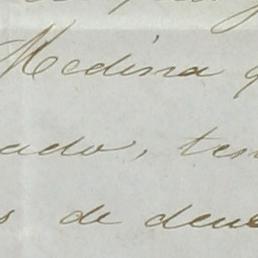 Medina
ado, ten
s de deve